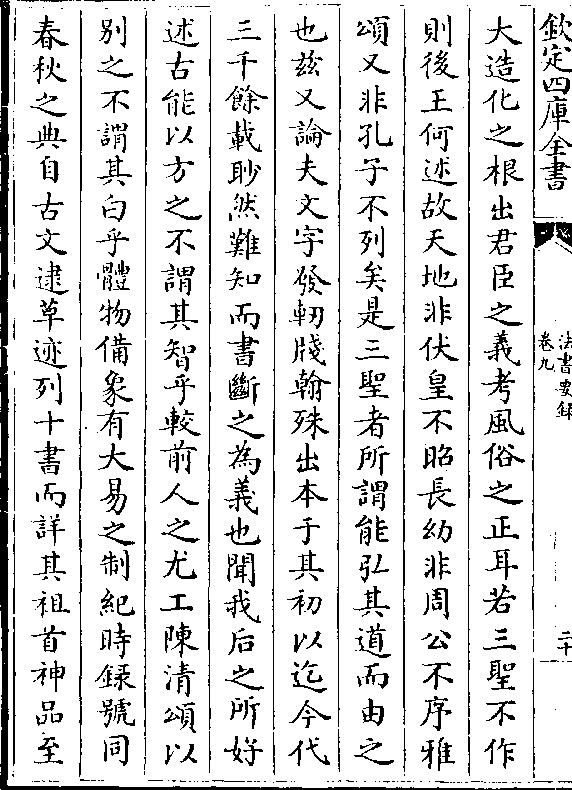 欽定四庫全書
法書要録
卷九
二十
大造化之根出君臣之義考風俗之正耳若三聖不作
則後王何述故天地非伏皇不昭長幼非周公不序雅
頌又非孔子不列矣是三聖者所謂能弘其道而由之
也兹又論夫文字發軔牋翰殊出本于其初以迄今代
三千餘載眇然難知而書斷之為義也聞我后之所好
述古能以方之不謂其智乎較前人之尤工陳清頌以
别之不謂其白乎體物備象有大易之制紀時録號同
春秋之典自古文逮草迹列十書而詳其祖首神品至